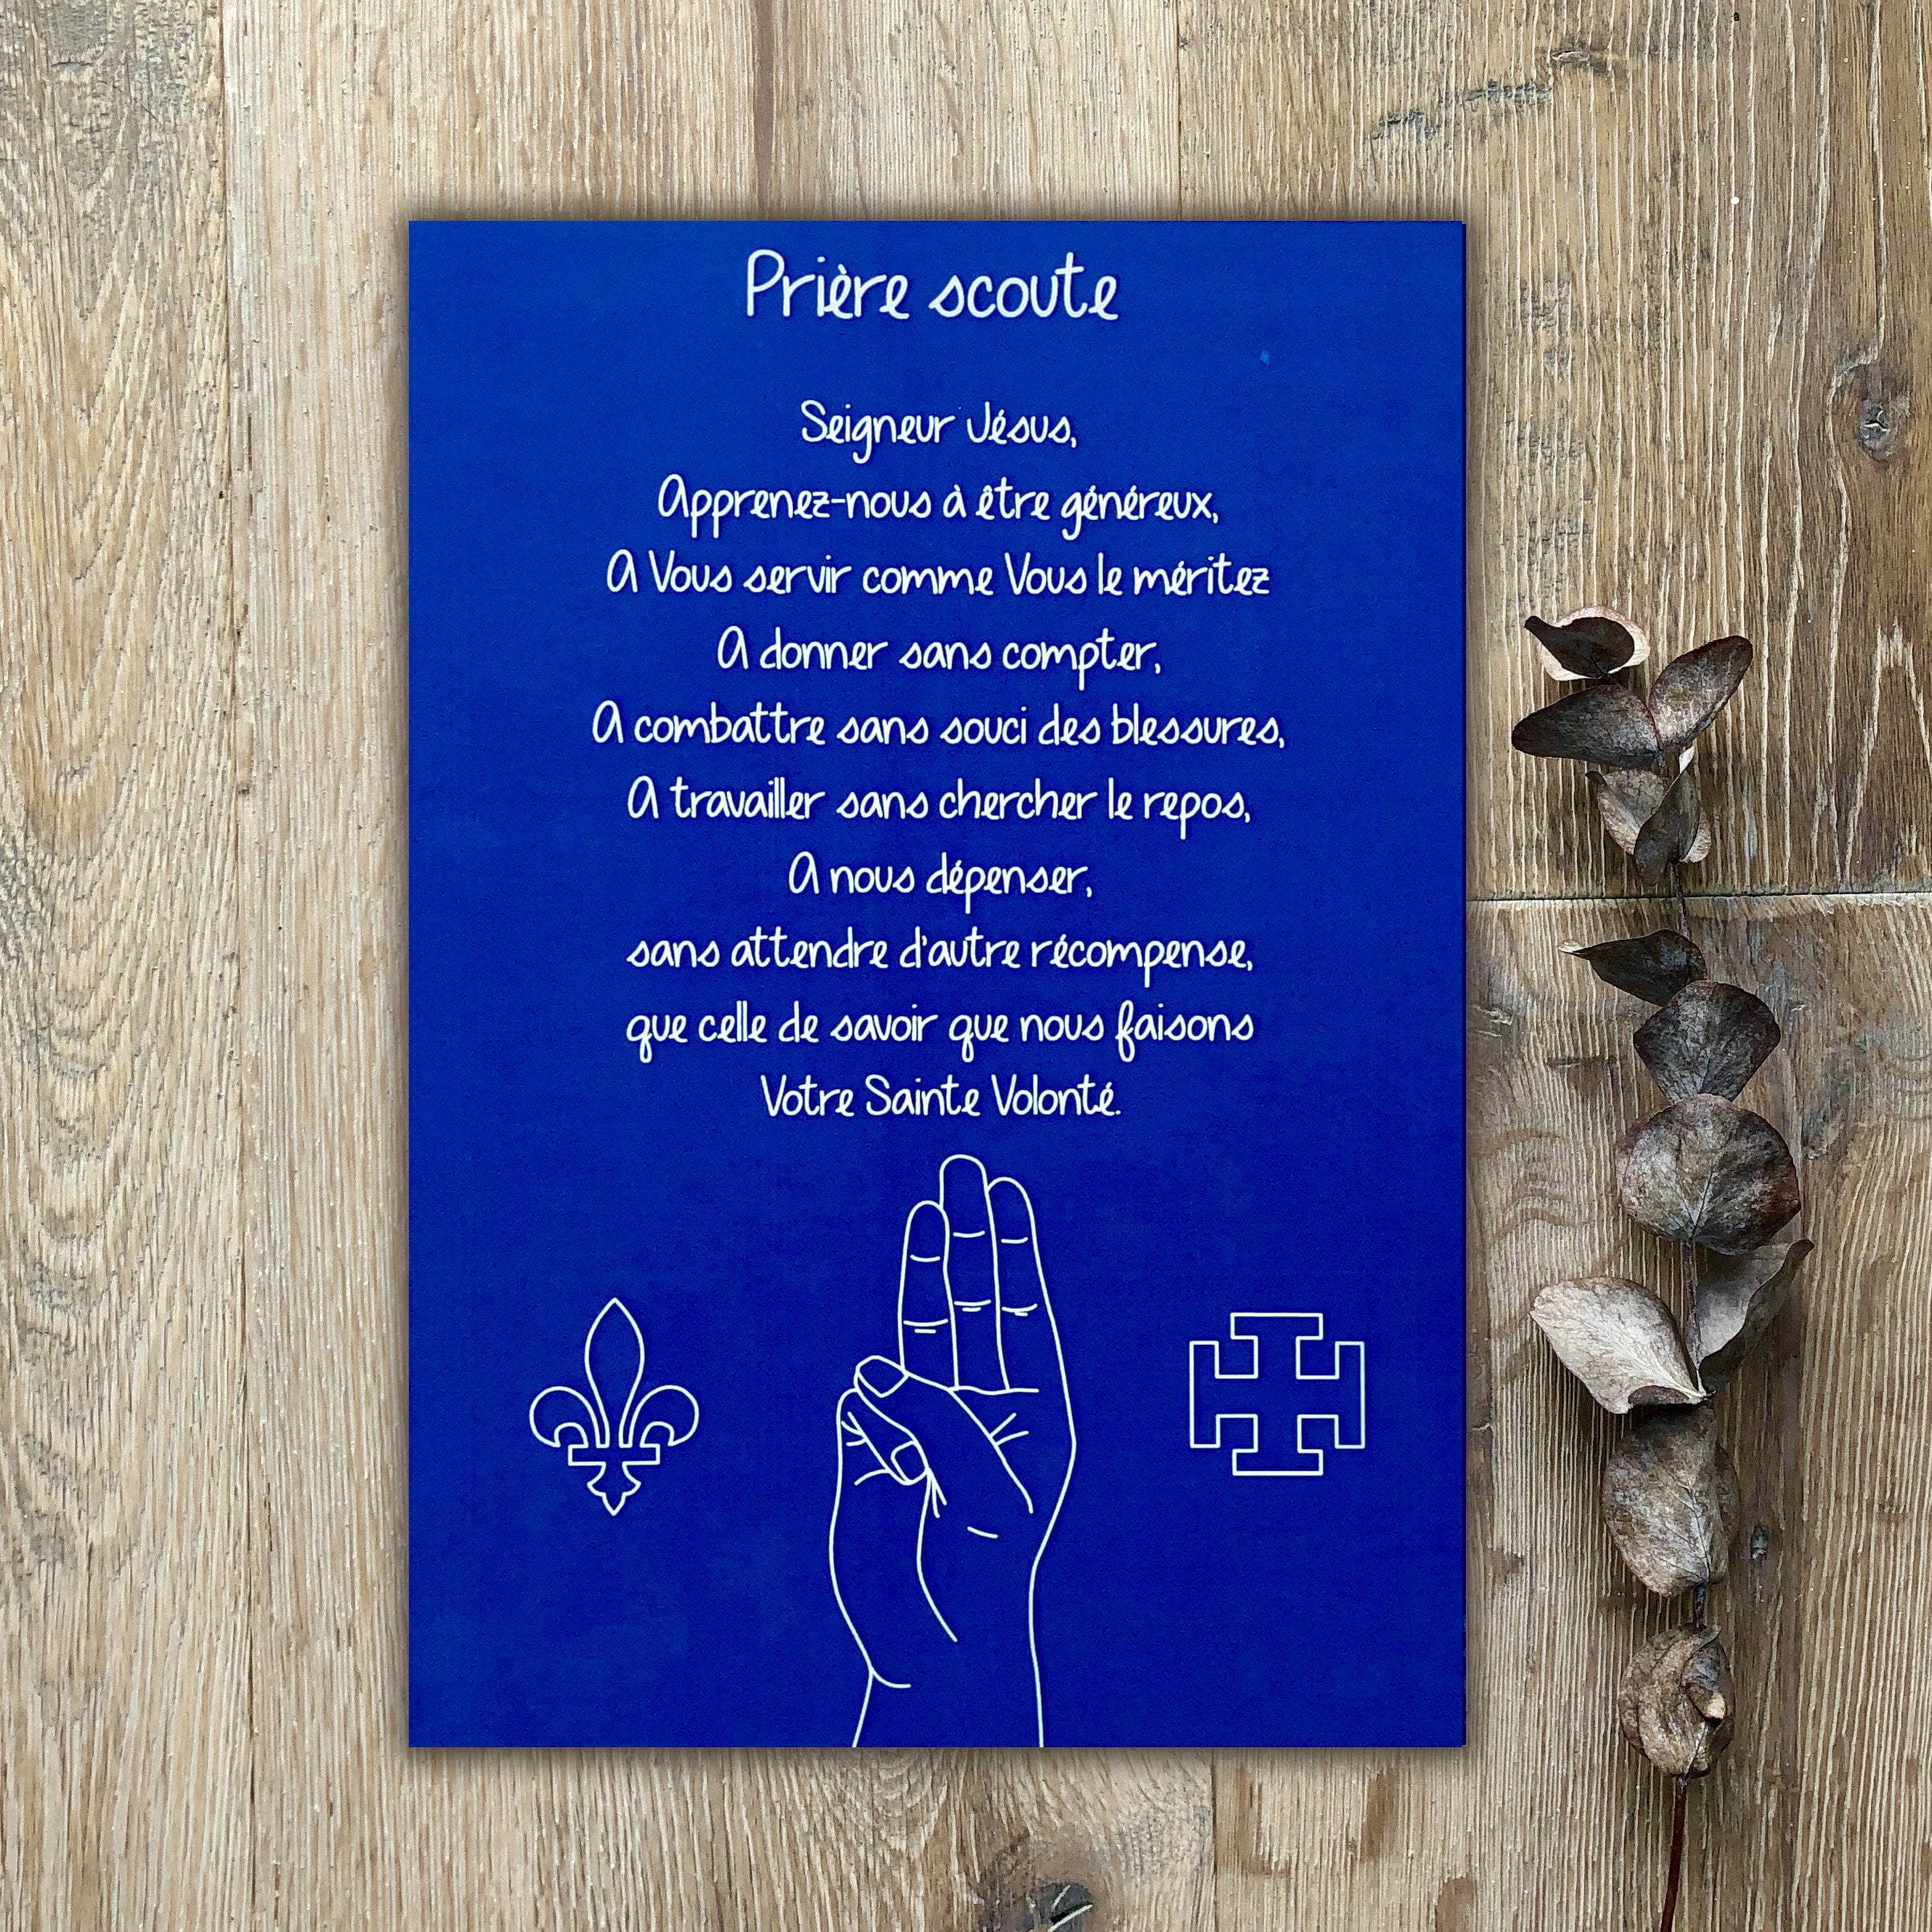 Prière scoute
Seigneur Jésus,
Apprenez-nous à être généreux,
A Vous servir comme Vous le méritez
A donner sans compter,
A combattre sans souci des blessures,
A travailler sans chercher le repos,
A nous dépenser,
sans attendre d'autre récompense,
que celle de savoir que nous faisons
Votre Sainte Volonté.